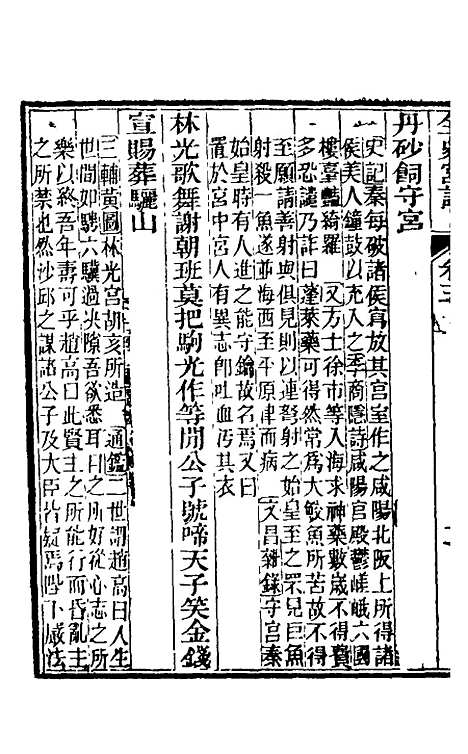 全史宮詞 卷三
丹砂飼守宮
史記秦每破諸侯寫放其宮室作之咸陽北阪上所得諸
侯美人鐘鼓以充入之李商隱詩咸陽宮殿鬱嵯峨六國
樓臺豔綺羅 又方士徐市等入海求神藥數歲不得費
多恐譴乃詐曰蓬萊藥可得然常爲大鮫魚所苦故不得
至願請善射與俱見則以連弩射之始皇至之罘見巨魚
射殺一魚遂並海西至平原津而病 文昌雜錄守宮秦
始皇時有人進之能守鑰故名焉又曰
置於宮中宮人有異志卽吐血汚其衣
林光歌舞謝朝班莫把駒光作等閒公子號啼天子笑金錢
宣賜葬驪山
三輔黃圖林光宮胡亥所造 通鑑二世謂趙高曰人生
世間如騁六驥過決隙吾欲悉耳目之所好從心志之所
樂以終吾年壽可乎趙高曰此賢主之所能行而昏亂主
之所禁也然沙邱之謀諸公子及大臣皆疑焉陛下嚴法